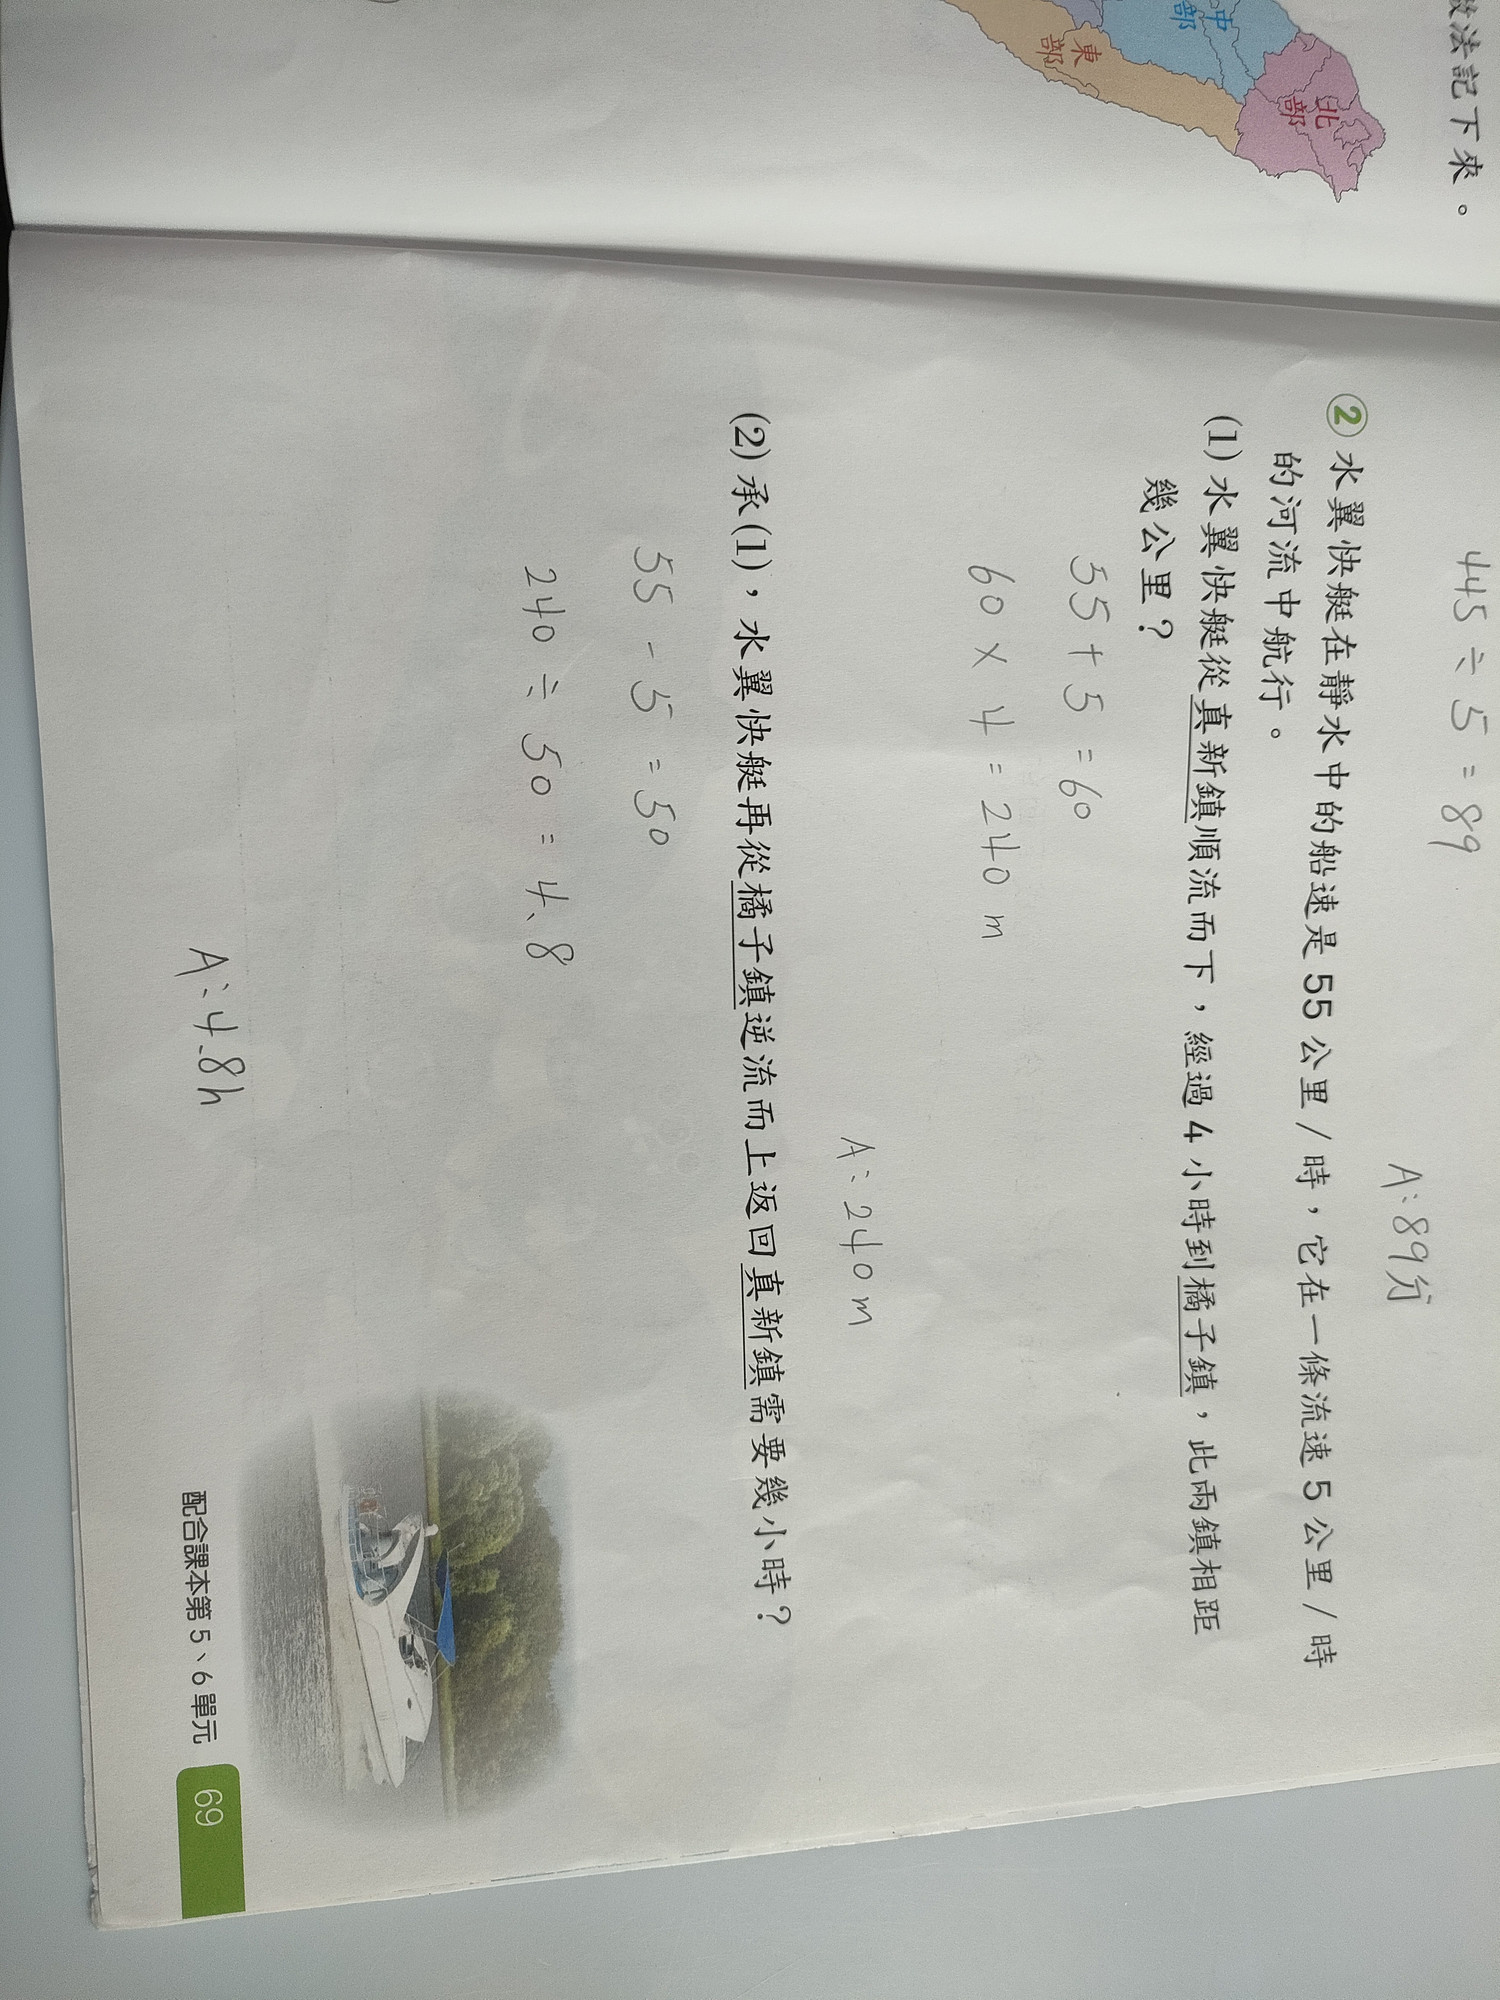 法記下來。
北部
中部
東部
445 ÷ 5 = 89
A:89分
② 水翼快艇在靜水中的船速是55公里/時，它在一條流速5公里/時
的河流中航行。
(1) 水翼快艇從真新鎮順流而下，經過4小時到橘子鎮，此兩鎮相距
幾公里？
55 + 5 = 60
60 × 4 = 240 m
A:240 m
(2) 承(1)，水翼快艇再從橘子鎮逆流而上返回真新鎮需要幾小時？
55 - 5 = 50
240 ÷ 50 = 4.8
A:4.8h
配合課本第5、6單元
69